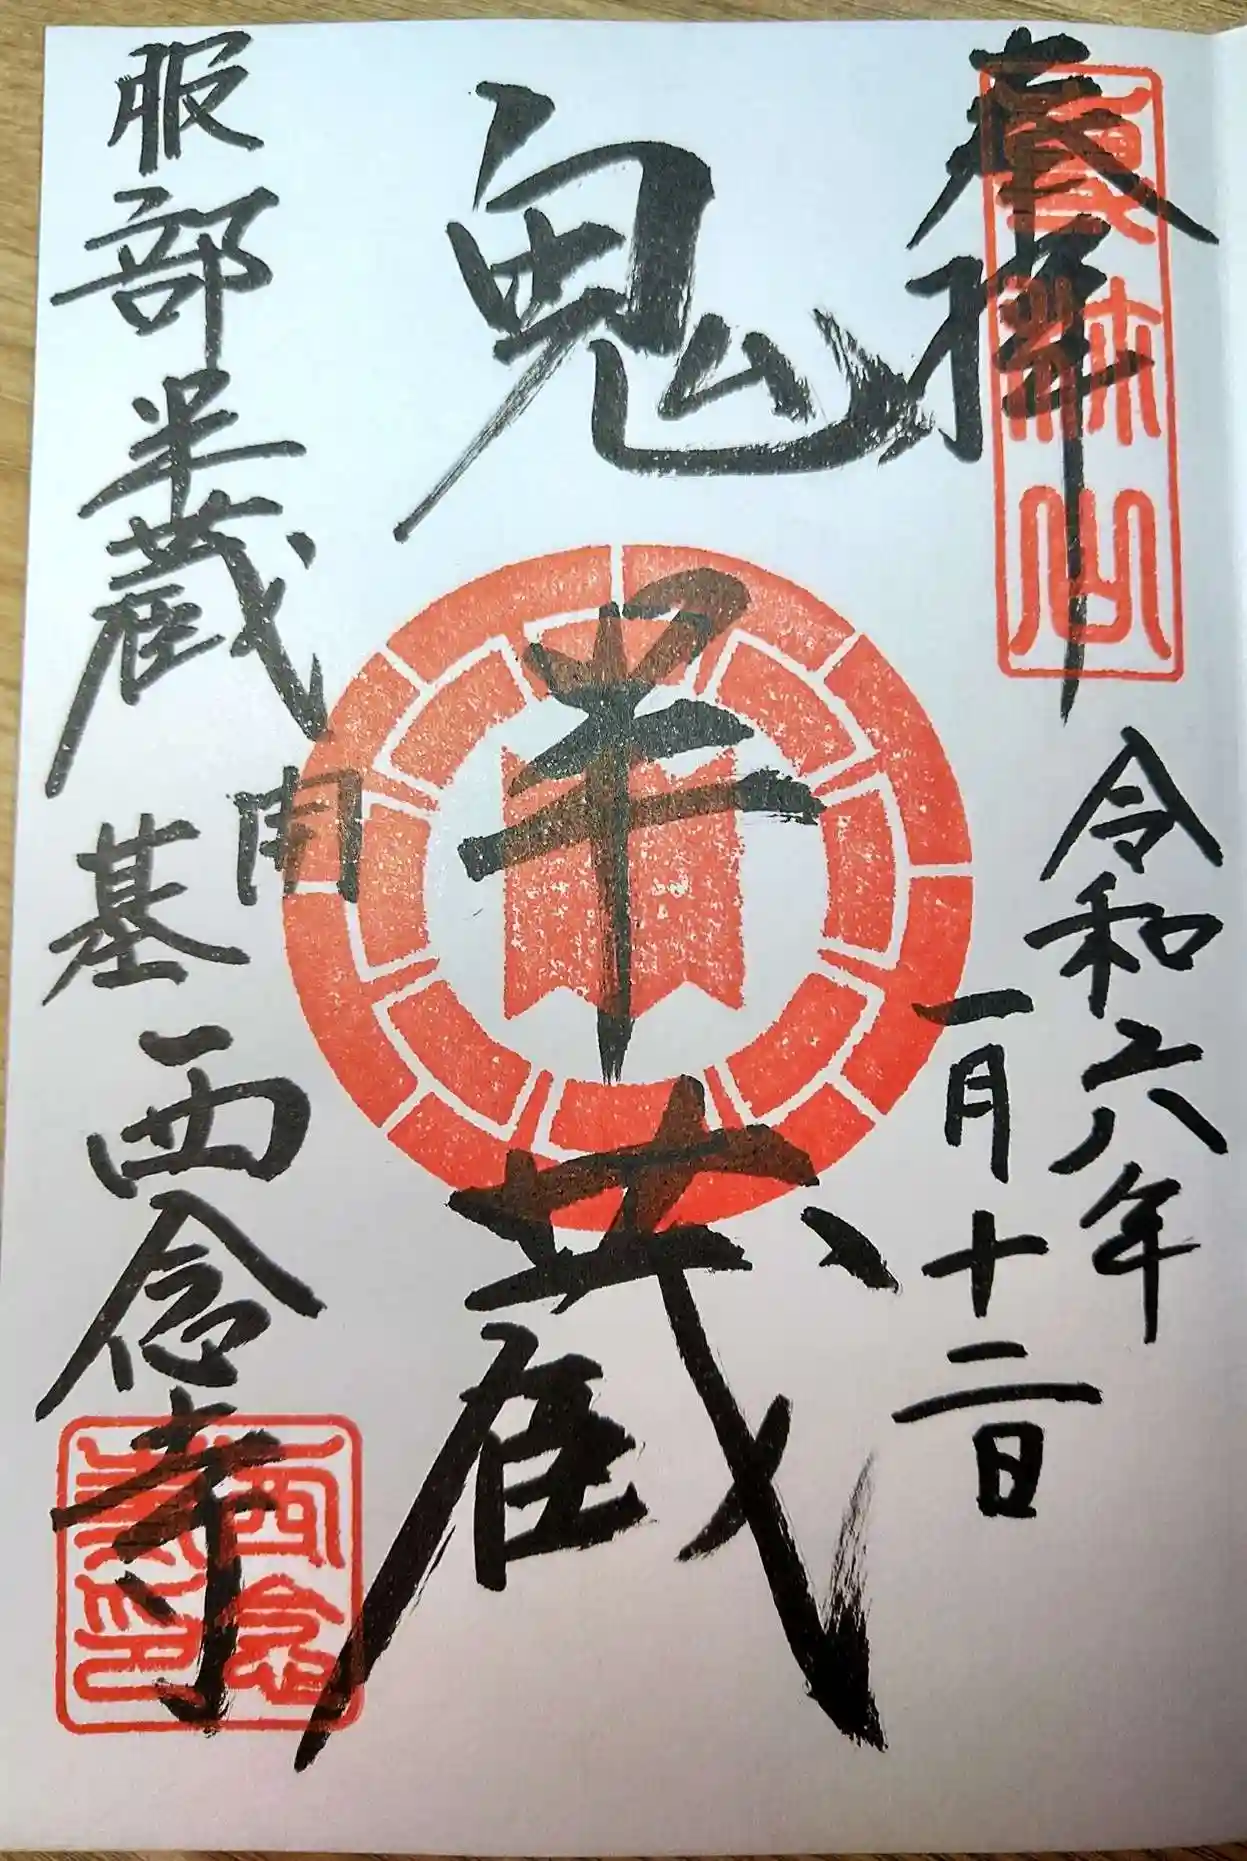 奉拝
専称山
令和六年
一月十二日
鬼半蔵
服部半蔵開基西念寺
西念寺印